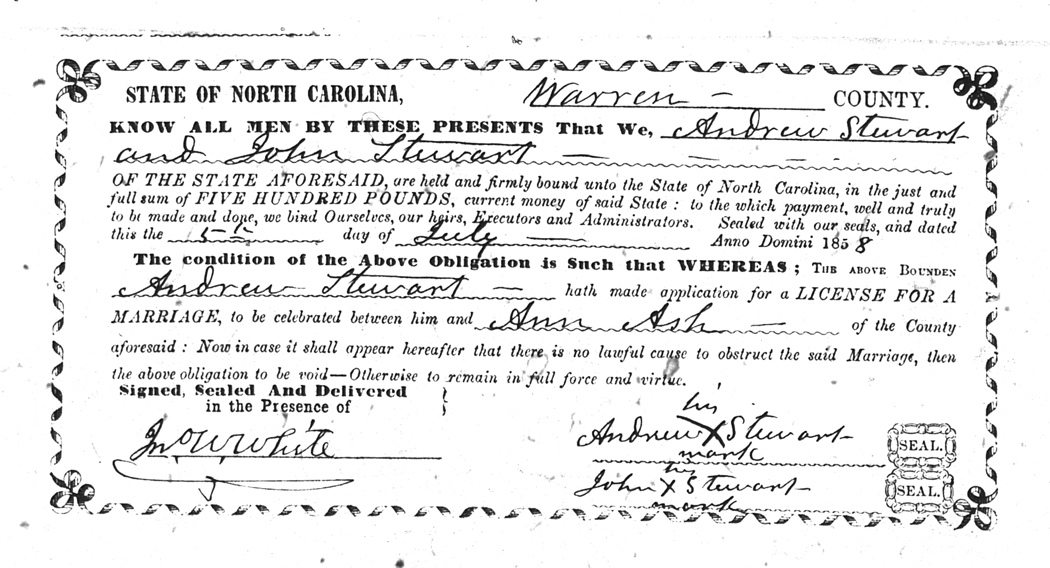 STATE OF NORTH CAROLINA, Warren — COUNTY.
KNOW ALL MEN BY THESE PRESENTS That We, Andrew Stewart
and John Stewart — — — —
OF THE STATE AFORESAID, are held and firmly bound unto the State of North Carolina, in the just and
full sum of FIVE HUNDRED POUNDS, current money of said State : to the which payment, well and truly
to be made and done, we bind Ourselves, our heirs, Executors and Administrators. Sealed with our seals, and dated
this the 5th day of July — Anno Domini 1858
The condition of the Above Obligation is Such that WHEREAS ; THE ABOVE BOUNDEN
Andrew Stewart — hath made application for a LICENSE FOR A
MARRIAGE, to be celebrated between him and Ann Ash — of the County
aforesaid : Now in case it shall appear hereafter that there is no lawful cause to obstruct the said Marriage, then
the above obligation to be void—Otherwise to remain in full force and virtue.
Signed, Sealed And Delivered
in the Presence of
his
Andrew X Stewart SEAL.
mark
Jno W White
his
John X Stewart SEAL.
mark